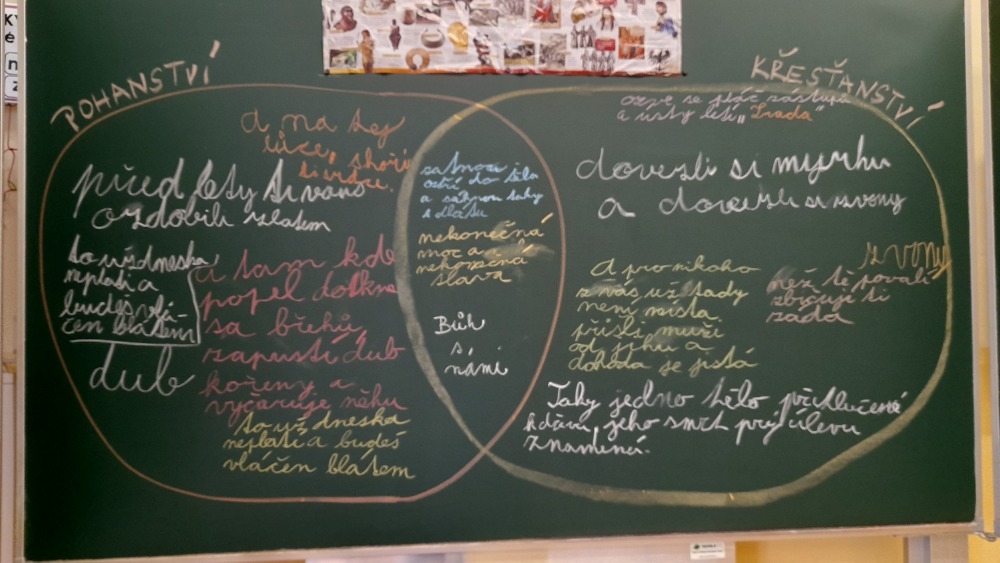 POHANSTVÍ
a na tej
lúce, shoří
ti srdce.
před lety ti vous
ozdobili zlatem
to už dneska
neplatí a
budeš vlá-
čen blátem
dub
a tam kde
popel dotkne
sa břehů,
zapustí dub
kořeny a
vyčaruje něhu
to už dneska
neplatí a budeš
vláčen blátem
zatnou
ostří do těla
a sáhnou taky
k dlátu
nekonečná
moc a
nekonečná
sláva
Bůh
s
námi
KŘESŤANSTVÍ
ozve se pláč zástupů
a ústy letí „Zrada"
dovezli si myrhu
a dovezli si zvony
zvony
a pro nikoho
z vás už tady
není místa.
přišli muži
od jihu a
dohoda je jistá
než tě povalí
zbičují ti
záda
Taky jedno tělo přitlučené
jeho smrt prý úlevu
znamená.